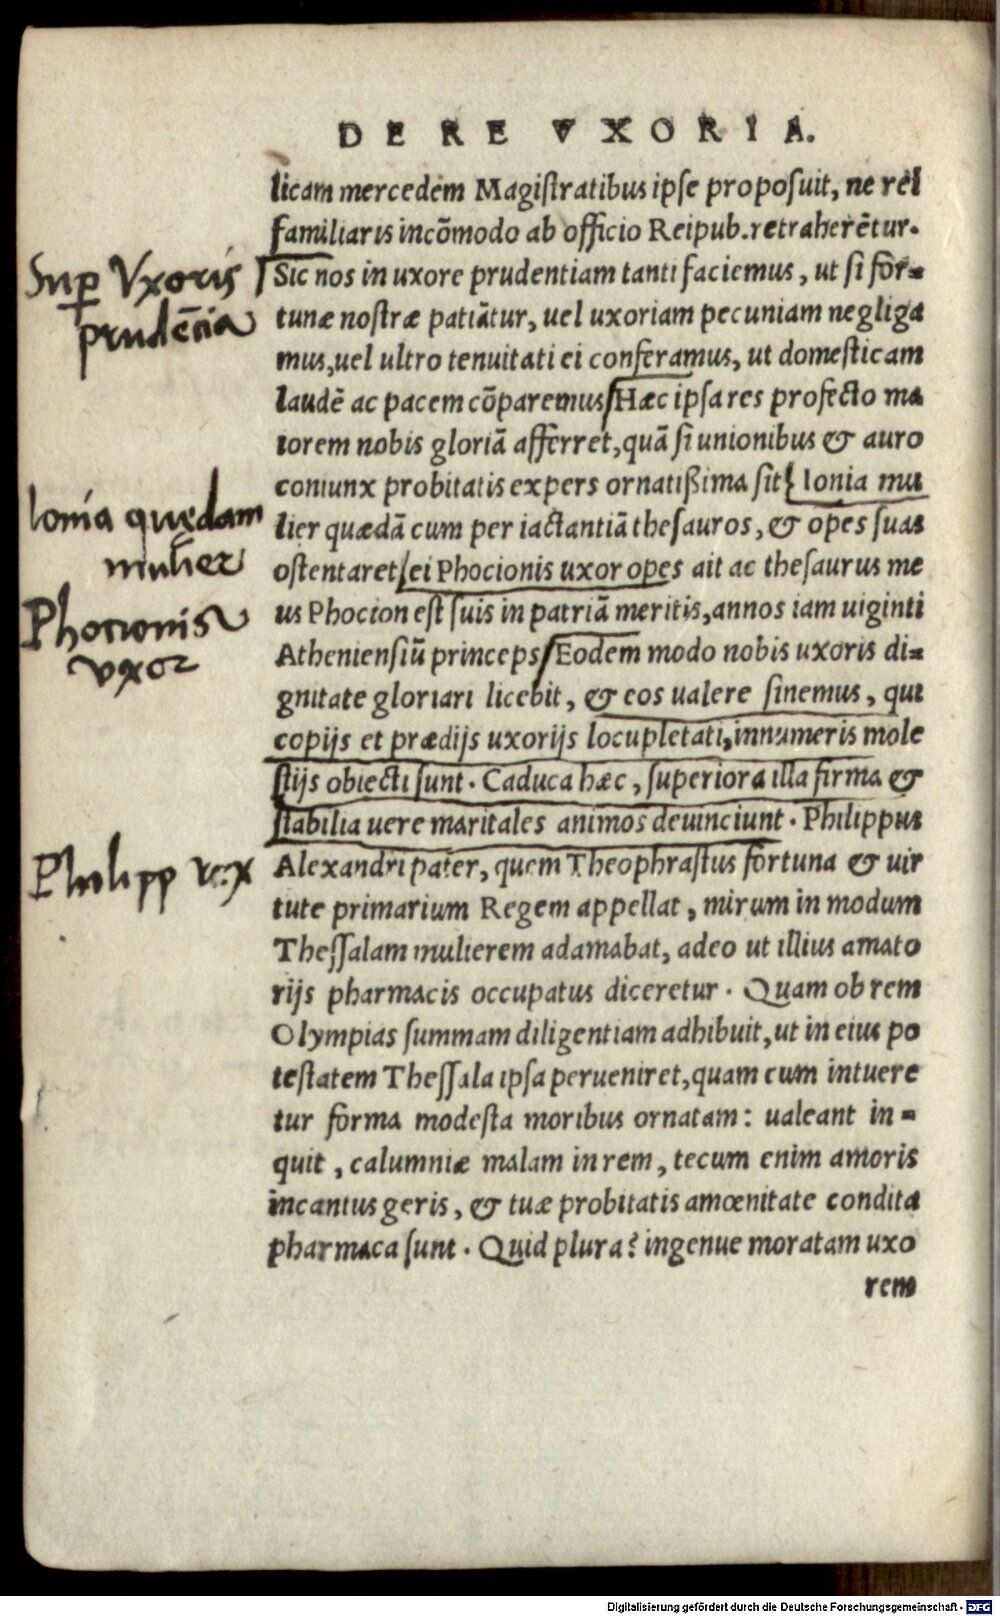 DE RE VXORIA.
licam mercedem Magistratibus ipse proposuit, ne rei
familiaris incõmodo ab officio Reipub. retraherẽtur.
Sic nos in uxore prudentiam tanti faciemus, ut si for=
tunæ nostræ patiãtur, uel uxoriam pecuniam negliga
mus, uel ultro tenuitati ei conferamus, ut domesticam
laudẽ ac pacem cõparemus Hæc ipsa res profecto ma
iorem nobis gloriã afferret, quã si unionibus & auro
coniunx probitatis expers ornatißima sit: Ionia mu
lier quædã cum per iactantiã thesauros, & opes suas
ostentaret, ei Phocionis uxor opes ait ac thesaurus me
us Phocion est suis in patriã meritis, annos iam uiginti
Atheniensiũ princeps Eodem modo nobis uxoris di=
gnitate gloriari licebit, & eos ualere sinemus, qui
copijs et prædijs uxorijs locupletati, innumeris mole
stijs obiecti sunt. Caduca hæc, superiora illa firma &
stabilia uere maritales animos deuinciunt. Philippus
Alexandri pater, quem Theophrastus fortuna & uir
tute primarium Regem appellat, mirum in modum
Thessalam mulierem adamabat, adeo ut illius amato
rijs pharmacis occupatus diceretur. Quam ob rem
Olympias summam diligentiam adhibuit, ut in eius po
testatem Thessala ipsa perueniret, quam cum intuere
tur forma modesta moribus ornatam: ualeant in=
quit, calumniæ malam in rem, tecum enim amoris
incantus geris, & tuæ probitatis amœnitate condita
pharmaca sunt. Quid plura? ingenue moratam uxo
rem
Sup Vxoris
prudẽcia
Ionia quędam
mulier
Phocionis
vxor
Philipp rex
Digitalisierung gefördert durch die Deutsche Forschungsgemeinschaft - DFG